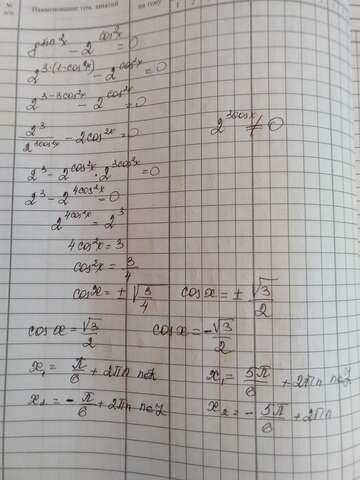 № п/п Наименование тем, занятий на тему 1 2 3 4
8^{sin²x} - 2^{cos²x} = 0
2^{3·(1-cos²x)} - 2^{cos²x} = 0
2^{3-3cos²x} - 2^{cos²x} = 0
2³/2^{3cos²x} - 2cos²x = 0 2^{3cosx} ≠ 0
2³ - 2^{cos²x} · 2^{3cos²x} = 0
2³ - 2^{4cos²x} = 0
2^{4cos²x} = 2³
4cos²x = 3
cos²x = 3/4
cosx = ± √3/4 cosx = ± √3/2
cosx = √3/2 cosx = -√3/2
x₁ = π/6 + 2πn n∈Z x₁ = 5π/6 + 2πn
x₂ = - π/6 + 2πn n∈Z x₂ = - 5π/6 + 2πn